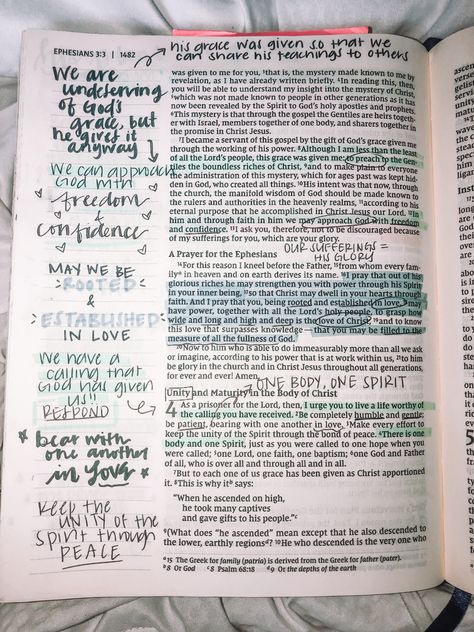 EPHESIANS 3:3 | 1482
his grace was given so that we
can share his teachings to others
We are
undeserving
of God's
grace, but
he gives it
anyway
We can approach
God with
freedom
&
confidence
MAY WE BE
ROOTED
&
ESTABLISHED
IN LOVE
We have a
calling that
God has given
us!!
RESPOND
bear with
one another
in Love
Keep the
UNITY of the
Spirit through
PEACE
was given to me for you, ³that is, the mystery made known to me by
revelation, as I have already written briefly. ⁴In reading this, then,
you will be able to understand my insight into the mystery of Christ,
⁵which was not made known to people in other generations as it has
now been revealed by the Spirit to God's holy apostles and prophets.
⁶This mystery is that through the gospel the Gentiles are heirs togeth-
er with Israel, members together of one body, and sharers together in
the promise in Christ Jesus.
⁷I became a servant of this gospel by the gift of God's grace given me
through the working of his power. ⁸Although I am less than the least
of all the Lord's people, this grace was given me: to preach to the Gen-
tiles the boundless riches of Christ, ⁹and to make plain to everyone
the administration of this mystery, which for ages past was kept hid-
den in God, who created all things. ¹⁰His intent was that now, through
the church, the manifold wisdom of God should be made known to
the rulers and authorities in the heavenly realms, ¹¹according to his
eternal purpose that he accomplished in Christ Jesus our Lord. ¹²In
him and through faith in him we may approach God with freedom
and confidence. ¹³I ask you, therefore, not to be discouraged because
of my sufferings for you, which are your glory.
OUR SUFFERINGS =
HIS GLORY
A Prayer for the Ephesians
¹⁴For this reason I kneel before the Father, ¹⁵from whom every fam-
ilyᵃ in heaven and on earth derives its name. ¹⁶I pray that out of his
glorious riches he may strengthen you with power through his Spirit
in your inner being, ¹⁷so that Christ may dwell in your hearts through
faith. And I pray that you, being rooted and established in love, ¹⁸may
have power, together with all the Lord's holy people, to grasp how
wide and long and high and deep is the love of Christ, ¹⁹and to know
this love that surpasses knowledge — that you may be filled to the
measure of all the fullness of God.
²⁰Now to him who is able to do immeasurably more than all we ask
or imagine, according to his power that is at work within us, ²¹to him
be glory in the church and in Christ Jesus throughout all generations,
for ever and ever! Amen.
ONE BODY, ONE SPIRIT
Unity and Maturity in the Body of Christ
4 As a prisoner for the Lord, then, I urge you to live a life worthy of
the calling you have received. ²Be completely humble and gentle;
be patient, bearing with one another in love. ³Make every effort to
keep the unity of the Spirit through the bond of peace. ⁴There is one
body and one Spirit, just as you were called to one hope when you
were called; ⁵one Lord, one faith, one baptism; ⁶one God and Father
of all, who is over all and through all and in all.
⁷But to each one of us grace has been given as Christ apportioned
it. ⁸This is why itᵇ says:
"When he ascended on high,
he took many captives
and gave gifts to his people."ᶜ
⁹(What does "he ascended" mean except that he also descended to
the lower, earthly regionsᵈ? ¹⁰He who descended is the very one who
ᵃ 15 The Greek for family (patria) is derived from the Greek for father (pater).
ᵇ 8 Or God ᶜ 8 Psalm 68:18 ᵈ 9 Or the depths of the earth